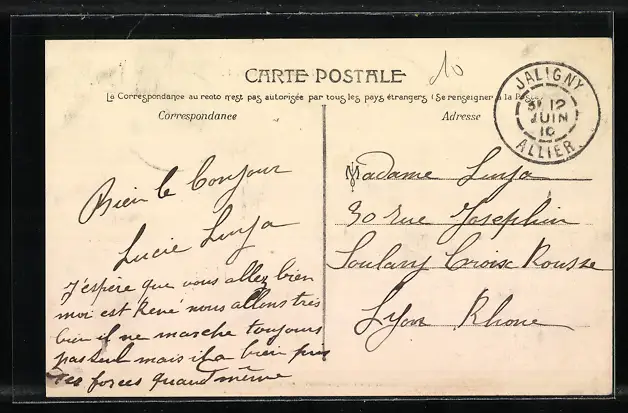 10
CARTE POSTALE
La Correspondance au recto n'est pas autorisée par tous les pays étrangers (Se renseigner à la Poste)
Correspondance
Adresse
JALIGNY
12
JUIN
10
ALLIER
Bien le Bonjour
Lucie
J'espère que vous allez bien
moi est René nous allons très
bien il ne marche toujours
pas seul mais il a bien pris
ses forces quand même
Madame
30 rue Josephin
Soulary Croix Rousse
Lyon Rhone